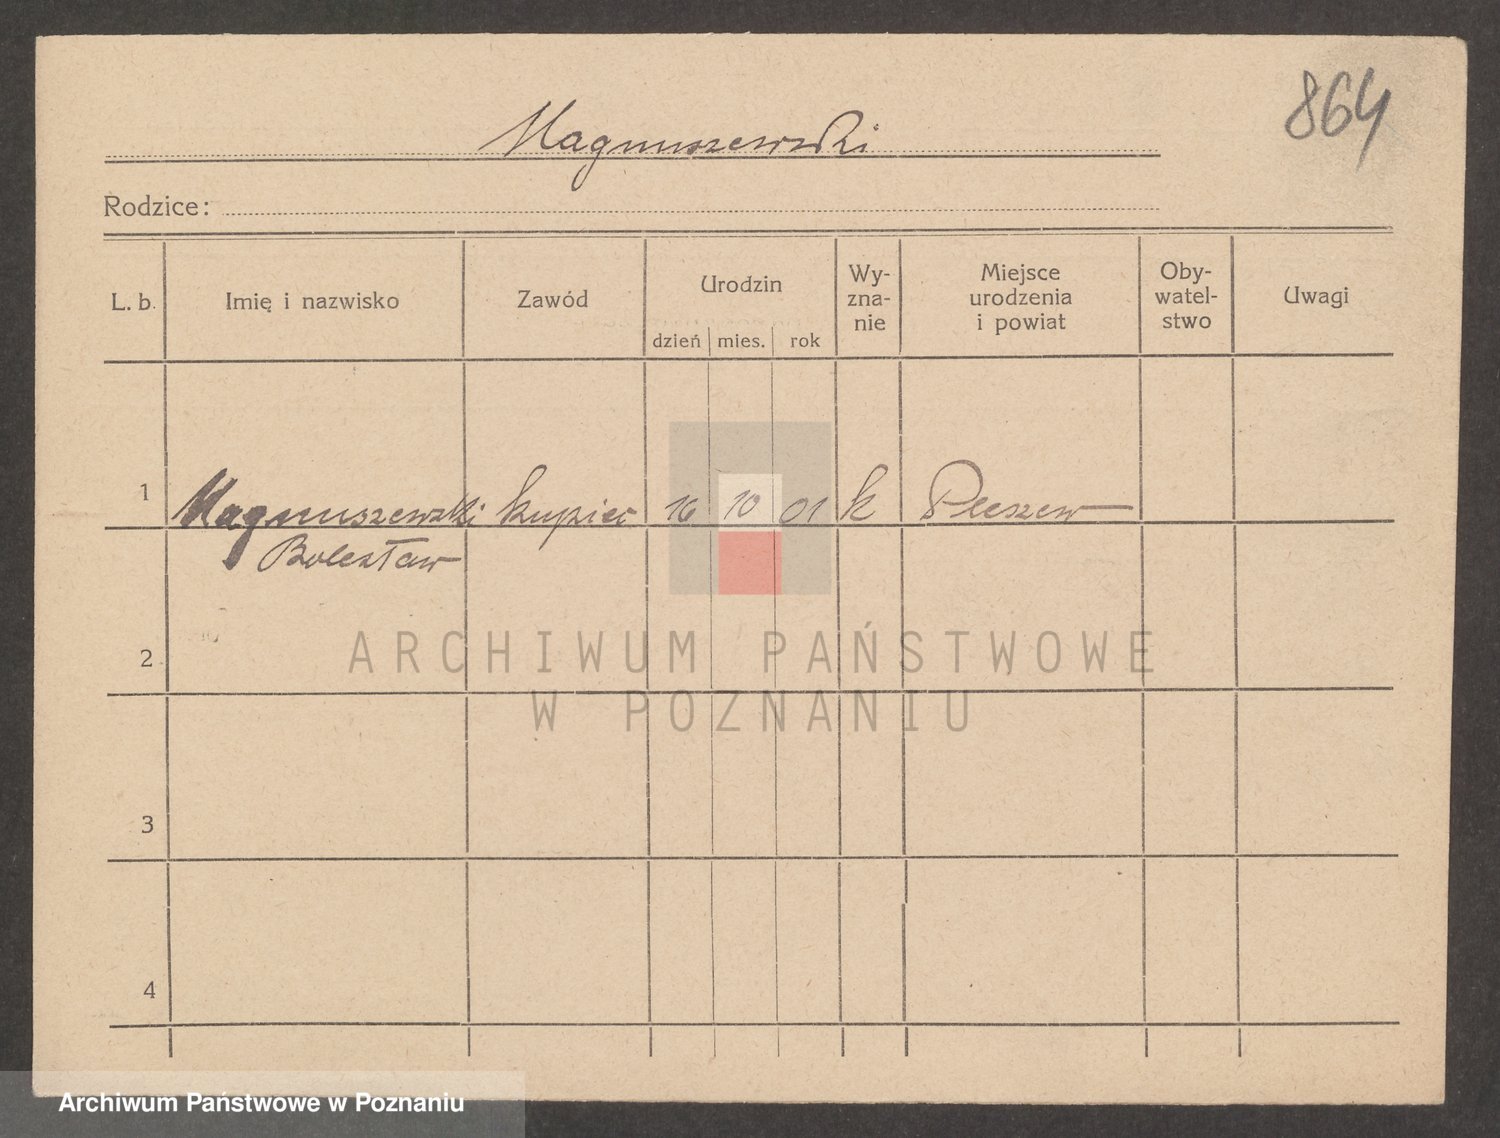 864
Magnuszewski
Rodzice:
L. b. Imię i nazwisko Zawód Urodzin dzień mies. rok Wy-zna-nie Miejsce urodzenia i powiat Oby-watel-stwo Uwagi
1 Magnuszewski kupiec 16 10 01 k Pleszew
Bolesław
2
ARCHIWUM PAŃSTWOWE
W POZNANIU
3
4
Archiwum Państwowe w Poznaniu